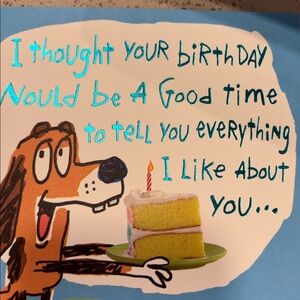 I thought YOUR biRthDAY
Would be A Good time
to teLL YOU eveRYthing
I Like About
YOU...